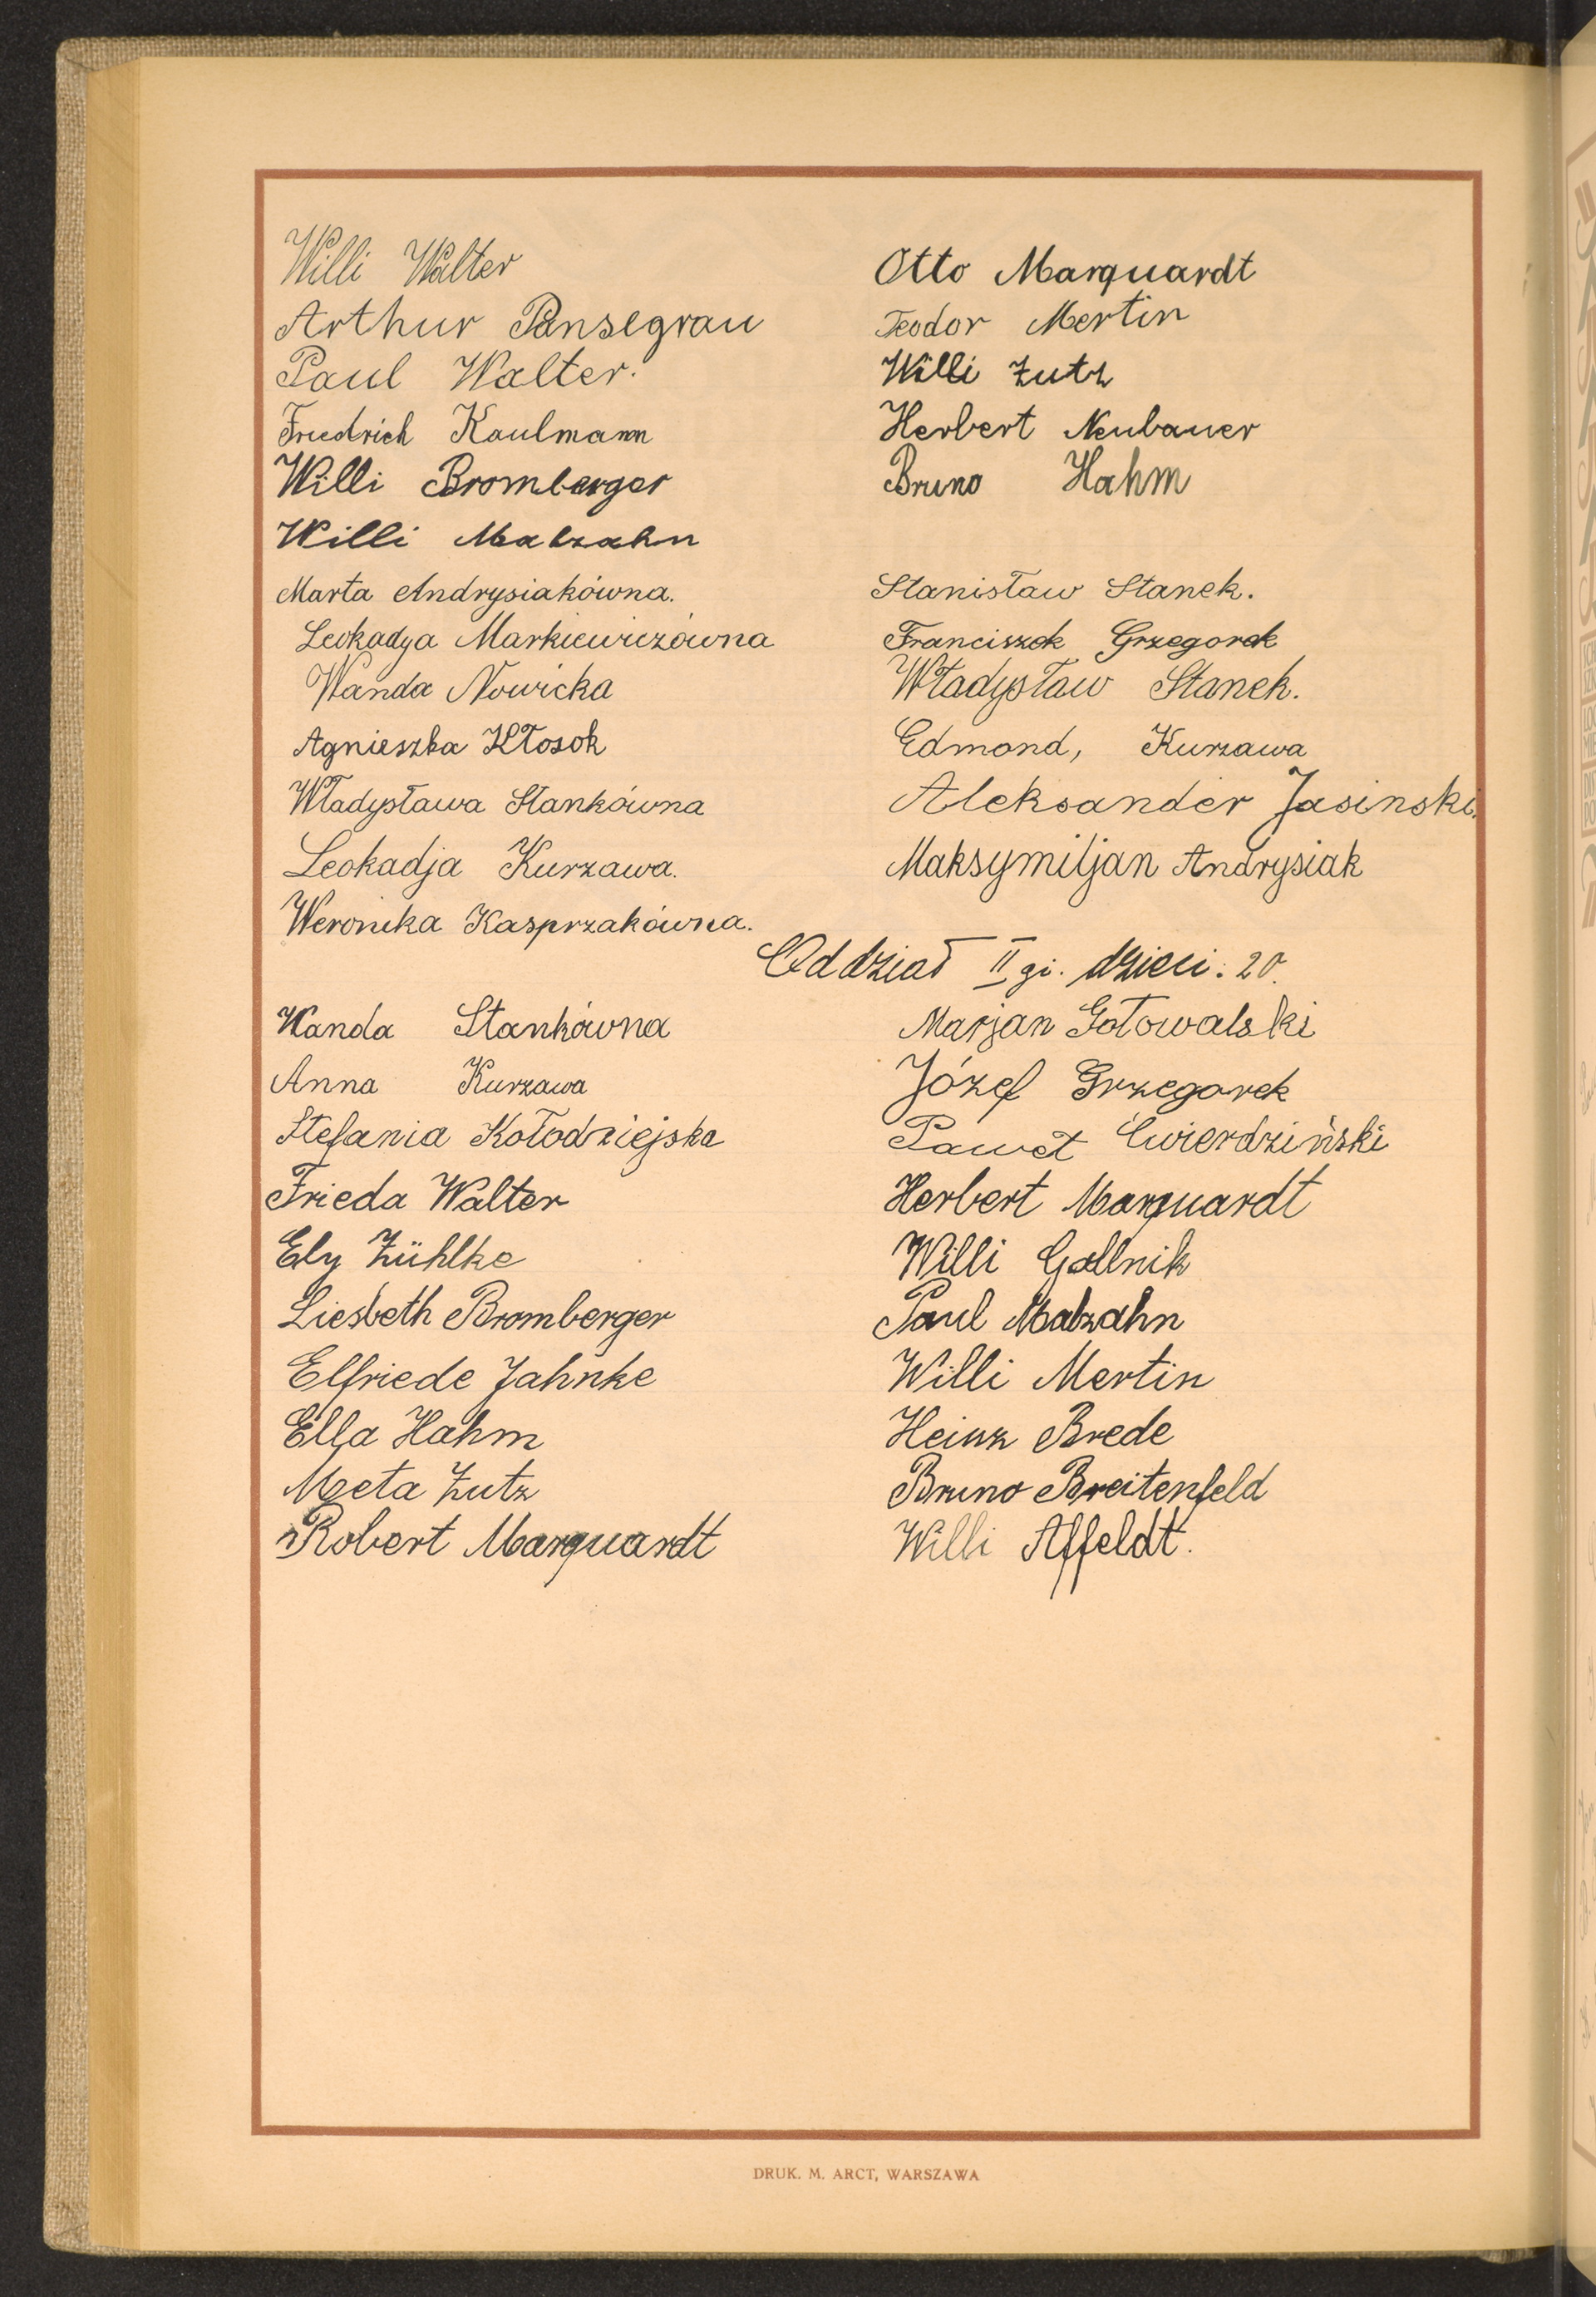 Willi Walter
Arthur Pansegrau
Paul Walter.
Friedrich Kaulmann
Willi Bromberger
Willi Malzahn
Marta Andrysiakówna.
Leokadya Markiewiczówna
Wanda Nowicka
Agnieszka Kłosok
Władysława Stankówna
Leokadja Kurzawa.
Weronika Kasprzakówna.
Otto Marquardt
Teodor Mertin
Willi Zutz
Herbert Neubauer
Bruno Hahm
Stanisław Stanek.
Franciszek Grzegorek
Władysław Stanek.
Edmond, Kurzawa
Aleksander Jasinski.
Maksymiljan Andrysiak
Oddział II gi. dzieci. 20.
Wanda Stankówna
Anna Kurzawa
Stefania Kołodziejska
Frieda Walter
Ely Zühlke
Liesbeth Bromberger
Elfriede Jahnke
Ella Hahm
Meta Zutz
Robert Marquardt
Marjan Gołowalski
Józef Grzegorek
Paweł Ćwierdziński
Herbert Marquardt
Willi Gollnik
Paul Malzahn
Willi Mertin
Heinz Brede
Bruno Breitenfeld
Willi Affeldt.
DRUK. M. ARCT, WARSZAWA